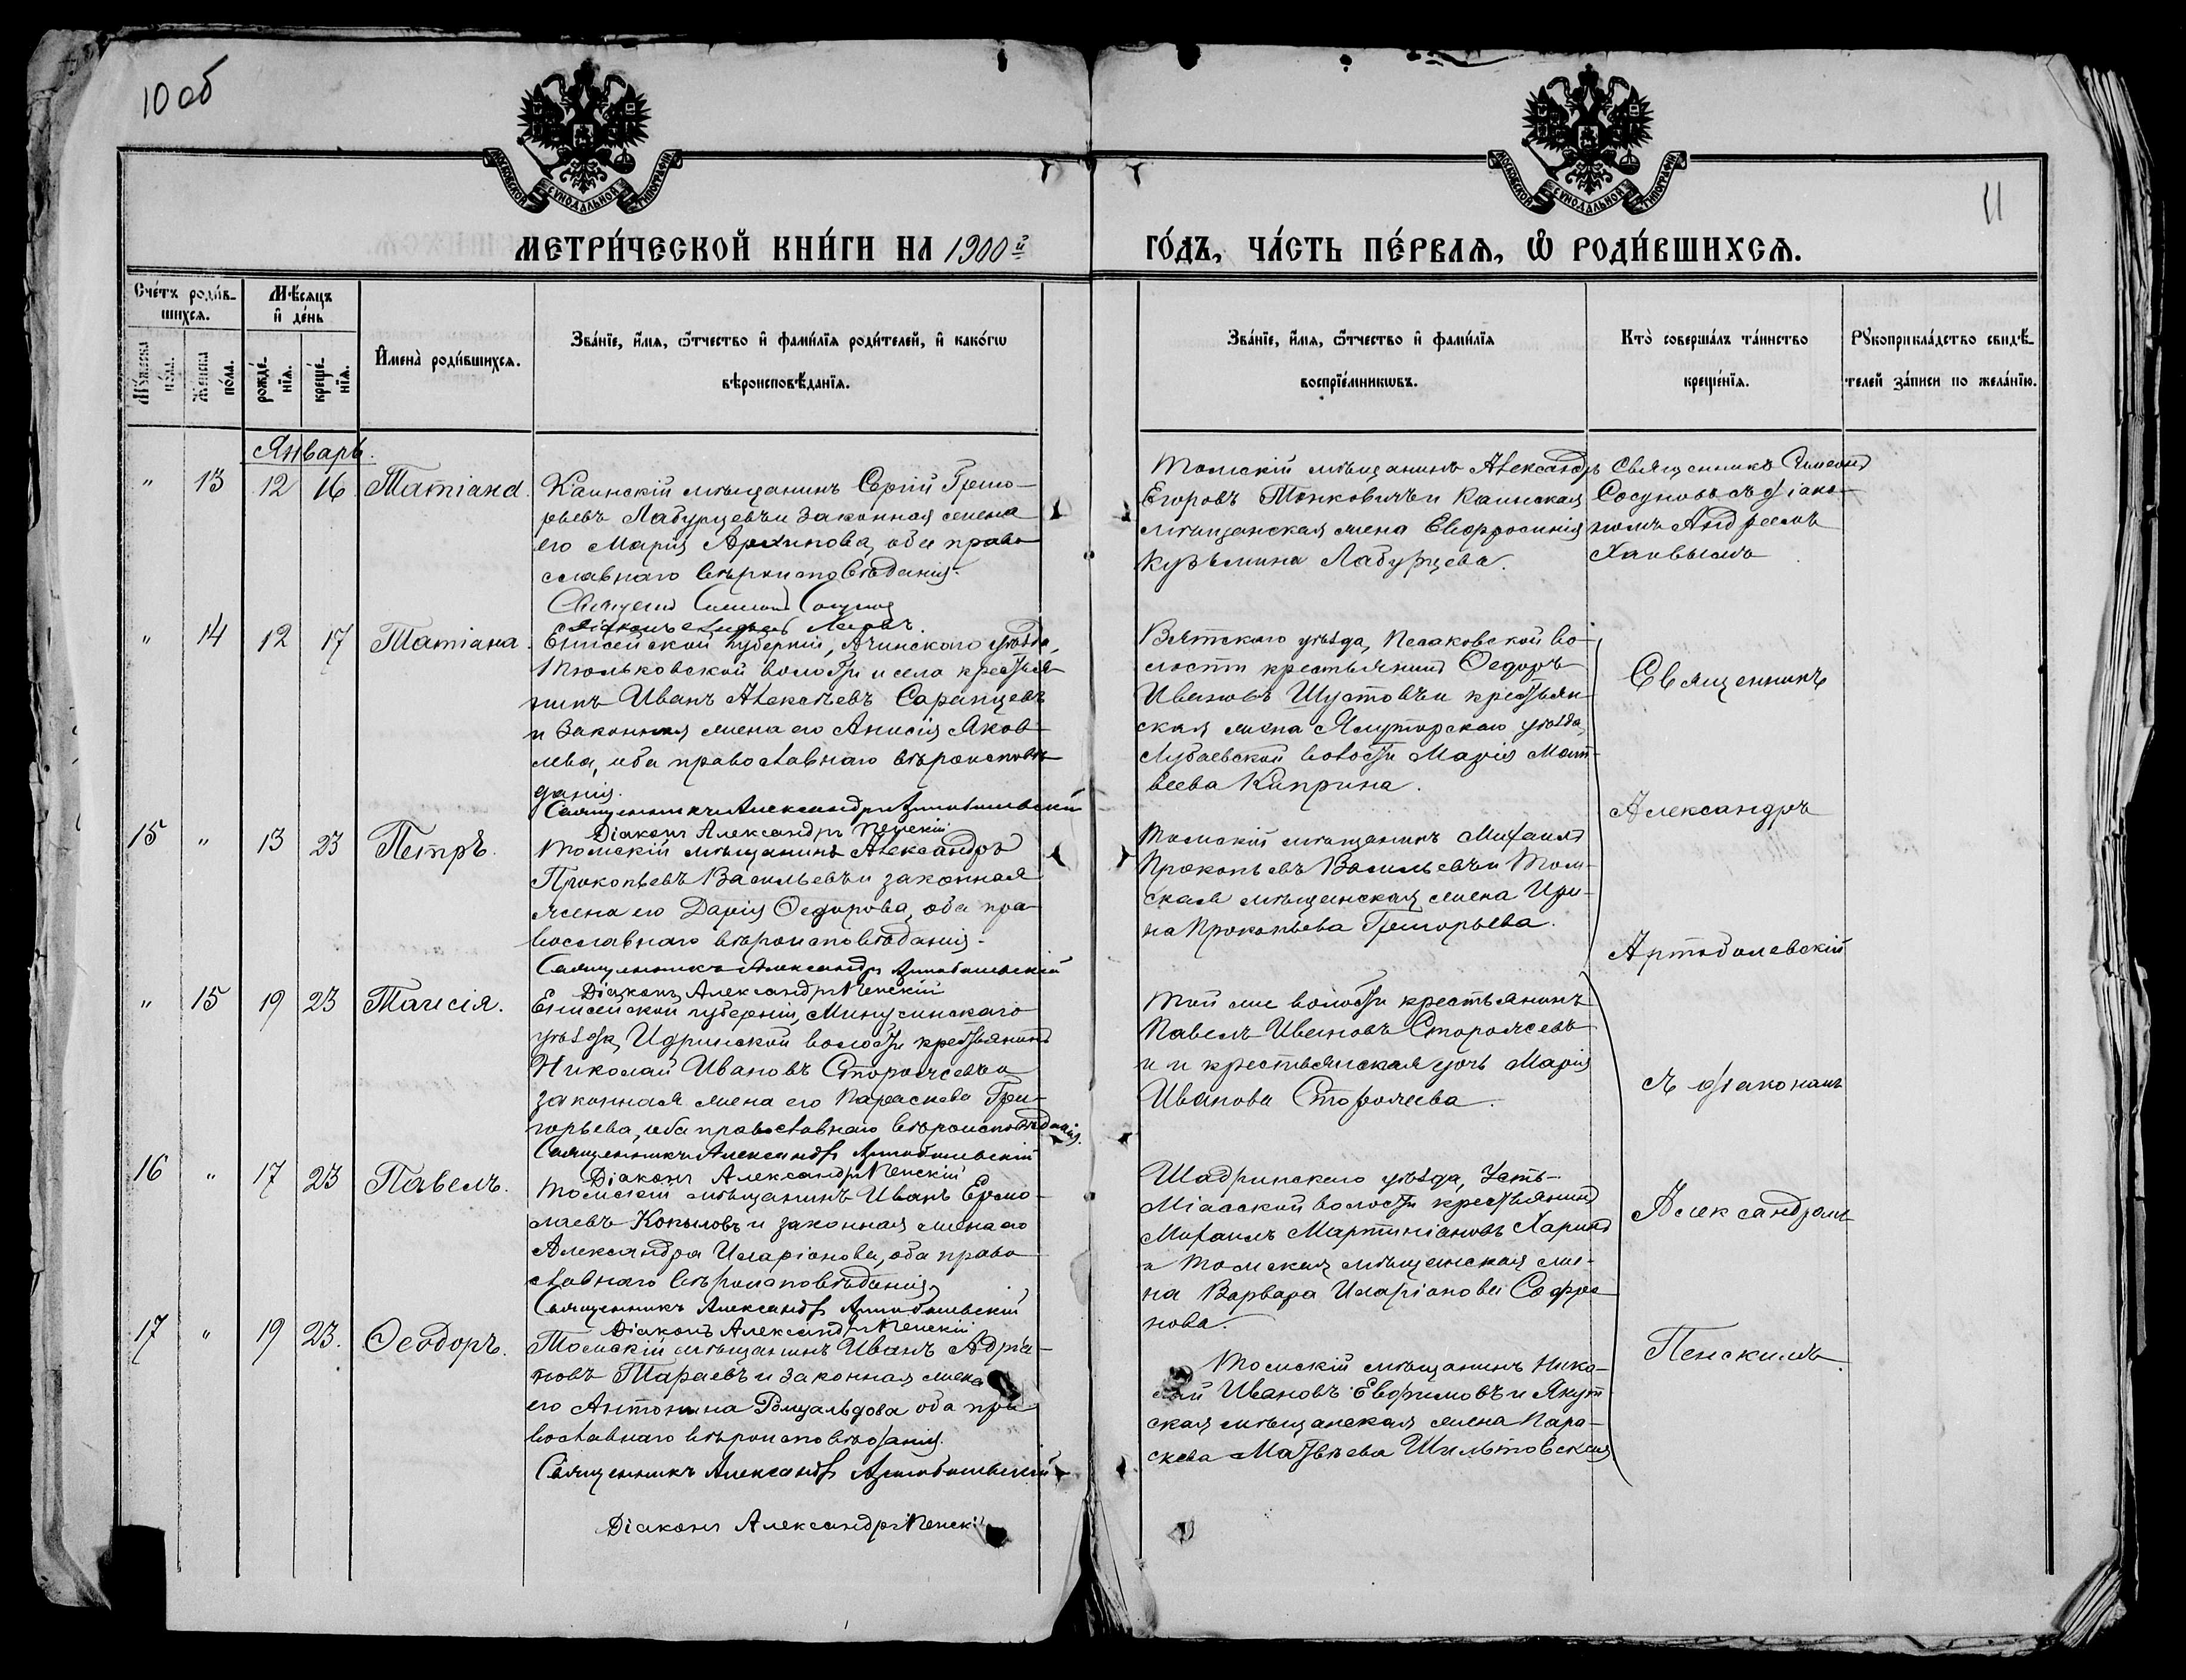 10 об
11
МОСКОВСКОЙ СѴНОДАЛЬНОЙ ТИПОГРАФІИ
МОСКОВСКОЙ СѴНОДАЛЬНОЙ ТИПОГРАФІИ
МЕТРИ́ЧЕСКОЙ КНИ́ГИ НА 1900й ГО́ДЪ, ЧА́СТЬ ПЕ́РВАѦ, Ѡ҆ РОДИ́ВШИХСѦ.
Сче́тъ роди́в-
шихсѧ.
Мѣ́сѧцъ
и҆ де́нь
Мꙋ́жеска
по́ла.
Же́нска
по́ла.
рожде́-
нїѧ.
креще́-
нїѧ.
И҆мена̀ роди́вшихсѧ.
Зва́нїе, и҆́мѧ, ѻ҆́тчество и҆ фами́лїѧ роди́телей, и҆ како́гѡ
вѣроисповѣ́данїѧ.
Зва́нїе, и҆́мѧ, ѻ҆́тчество и҆ фами́лїѧ
воспрїе́мникѡвъ.
Кто̀ соверша́лъ та́инство
креще́нїѧ.
Рꙋкоприкла́дство свидѣ́-
телей за́писи по жела́нїю.
Январь.
" 13 12 16 Татіана
Каинскій мѣщанинъ Сергій Григо-
рьевъ Лабурцевъ и законная жена
его Марія Архипова, оба право-
славнаго вѣроисповѣданія.
Томскій мѣщанинъ Александръ
Егоровъ Тонковичъ и Каинская
мѣщанская жена Евфросинія
Кузьмина Лабурцева.
Священникъ Симеонъ
Сосуновъ съ діако-
номъ Андреемъ
" 14 12 17 Татіана.
Енисейской губерніи, Ачинскаго уѣзда,
Тюльковской волости и села крестья-
нинъ Иванъ Алексѣевъ Саранцевъ
и законная жена его Анисія Яков-
лева, оба православнаго вѣроисповѣ-
данія.
Священникъ Александръ Артоболевскій
Діаконъ Александръ Пенскій
Вятскаго уѣзда, Песаковской во-
лости крестьянинъ Ѳедоръ
Ивановъ Шустовъ и крестьян-
ская жена Ялуторскаго уѣзда,
Лыбаевской волости Марія Мат-
веева Киприна.
15 " 13 23 Петръ.
Томскій мѣщанинъ Александръ
Прокопьевъ Васильевъ и законная
жена его Дарія Ѳедорова, оба пра-
вославнаго вѣроисповѣданія.
Священникъ Александръ Артоболевскій
Діаконъ Александръ Пенскій
Томскій мѣщанинъ Михаилъ
Прокопьевъ Васильевъ и Том-
ская мѣщанская жена Ири-
на Прокопьева Григорьева.
" 15 19 23 Таисія.
Енисейской губерніи, Минусинскаго
уѣзда, Идринской волости крестьянинъ
Николай Ивановъ Сторожевъ и
законная жена его Параскева Гри-
горьева, оба православнаго вѣроисповѣданія.
Священникъ Александръ Артоболевскій
Діаконъ Александръ Пенскій
Той же волости крестьянинъ
Павелъ Ивановъ Сторожевъ
и крестьянская дочь Марія
Иванова Сторожева.
16 " 17 23 Павелъ.
Томскій мѣщанинъ Иванъ Ермо-
лаевъ Копыловъ и законная жена его
Александра Иларіонова, оба право-
славнаго вѣроисповѣданія,
Священникъ Александръ Артоболевскій
Діаконъ Александръ Пенскій
Шадринскаго уѣзда, Усть-
Міасской волости крестьянинъ
Михаилъ Мартиніановъ Харинъ
и Томская мѣщанская же-
на Варвара Иларіонова Софро-
нова.
17 " 19 23. Ѳеодоръ.
Томскій мѣщанинъ Иванъ Адріа-
новъ Тараевъ и законная жена
его Антонина Ромуальдова оба пра-
вославнаго вѣроисповѣданія.
Священникъ Александръ Артоболевскій
Діаконъ Александръ Пенскі
Томскій мѣщанинъ Нико-
лай Ивановъ Евфимовъ и Якут-
ская мѣщанская жена Пара-
скева Матвѣева Шильтовская
Священникъ
Александръ
Артоболевскій
съ діакономъ
Александромъ
Пенскимъ.